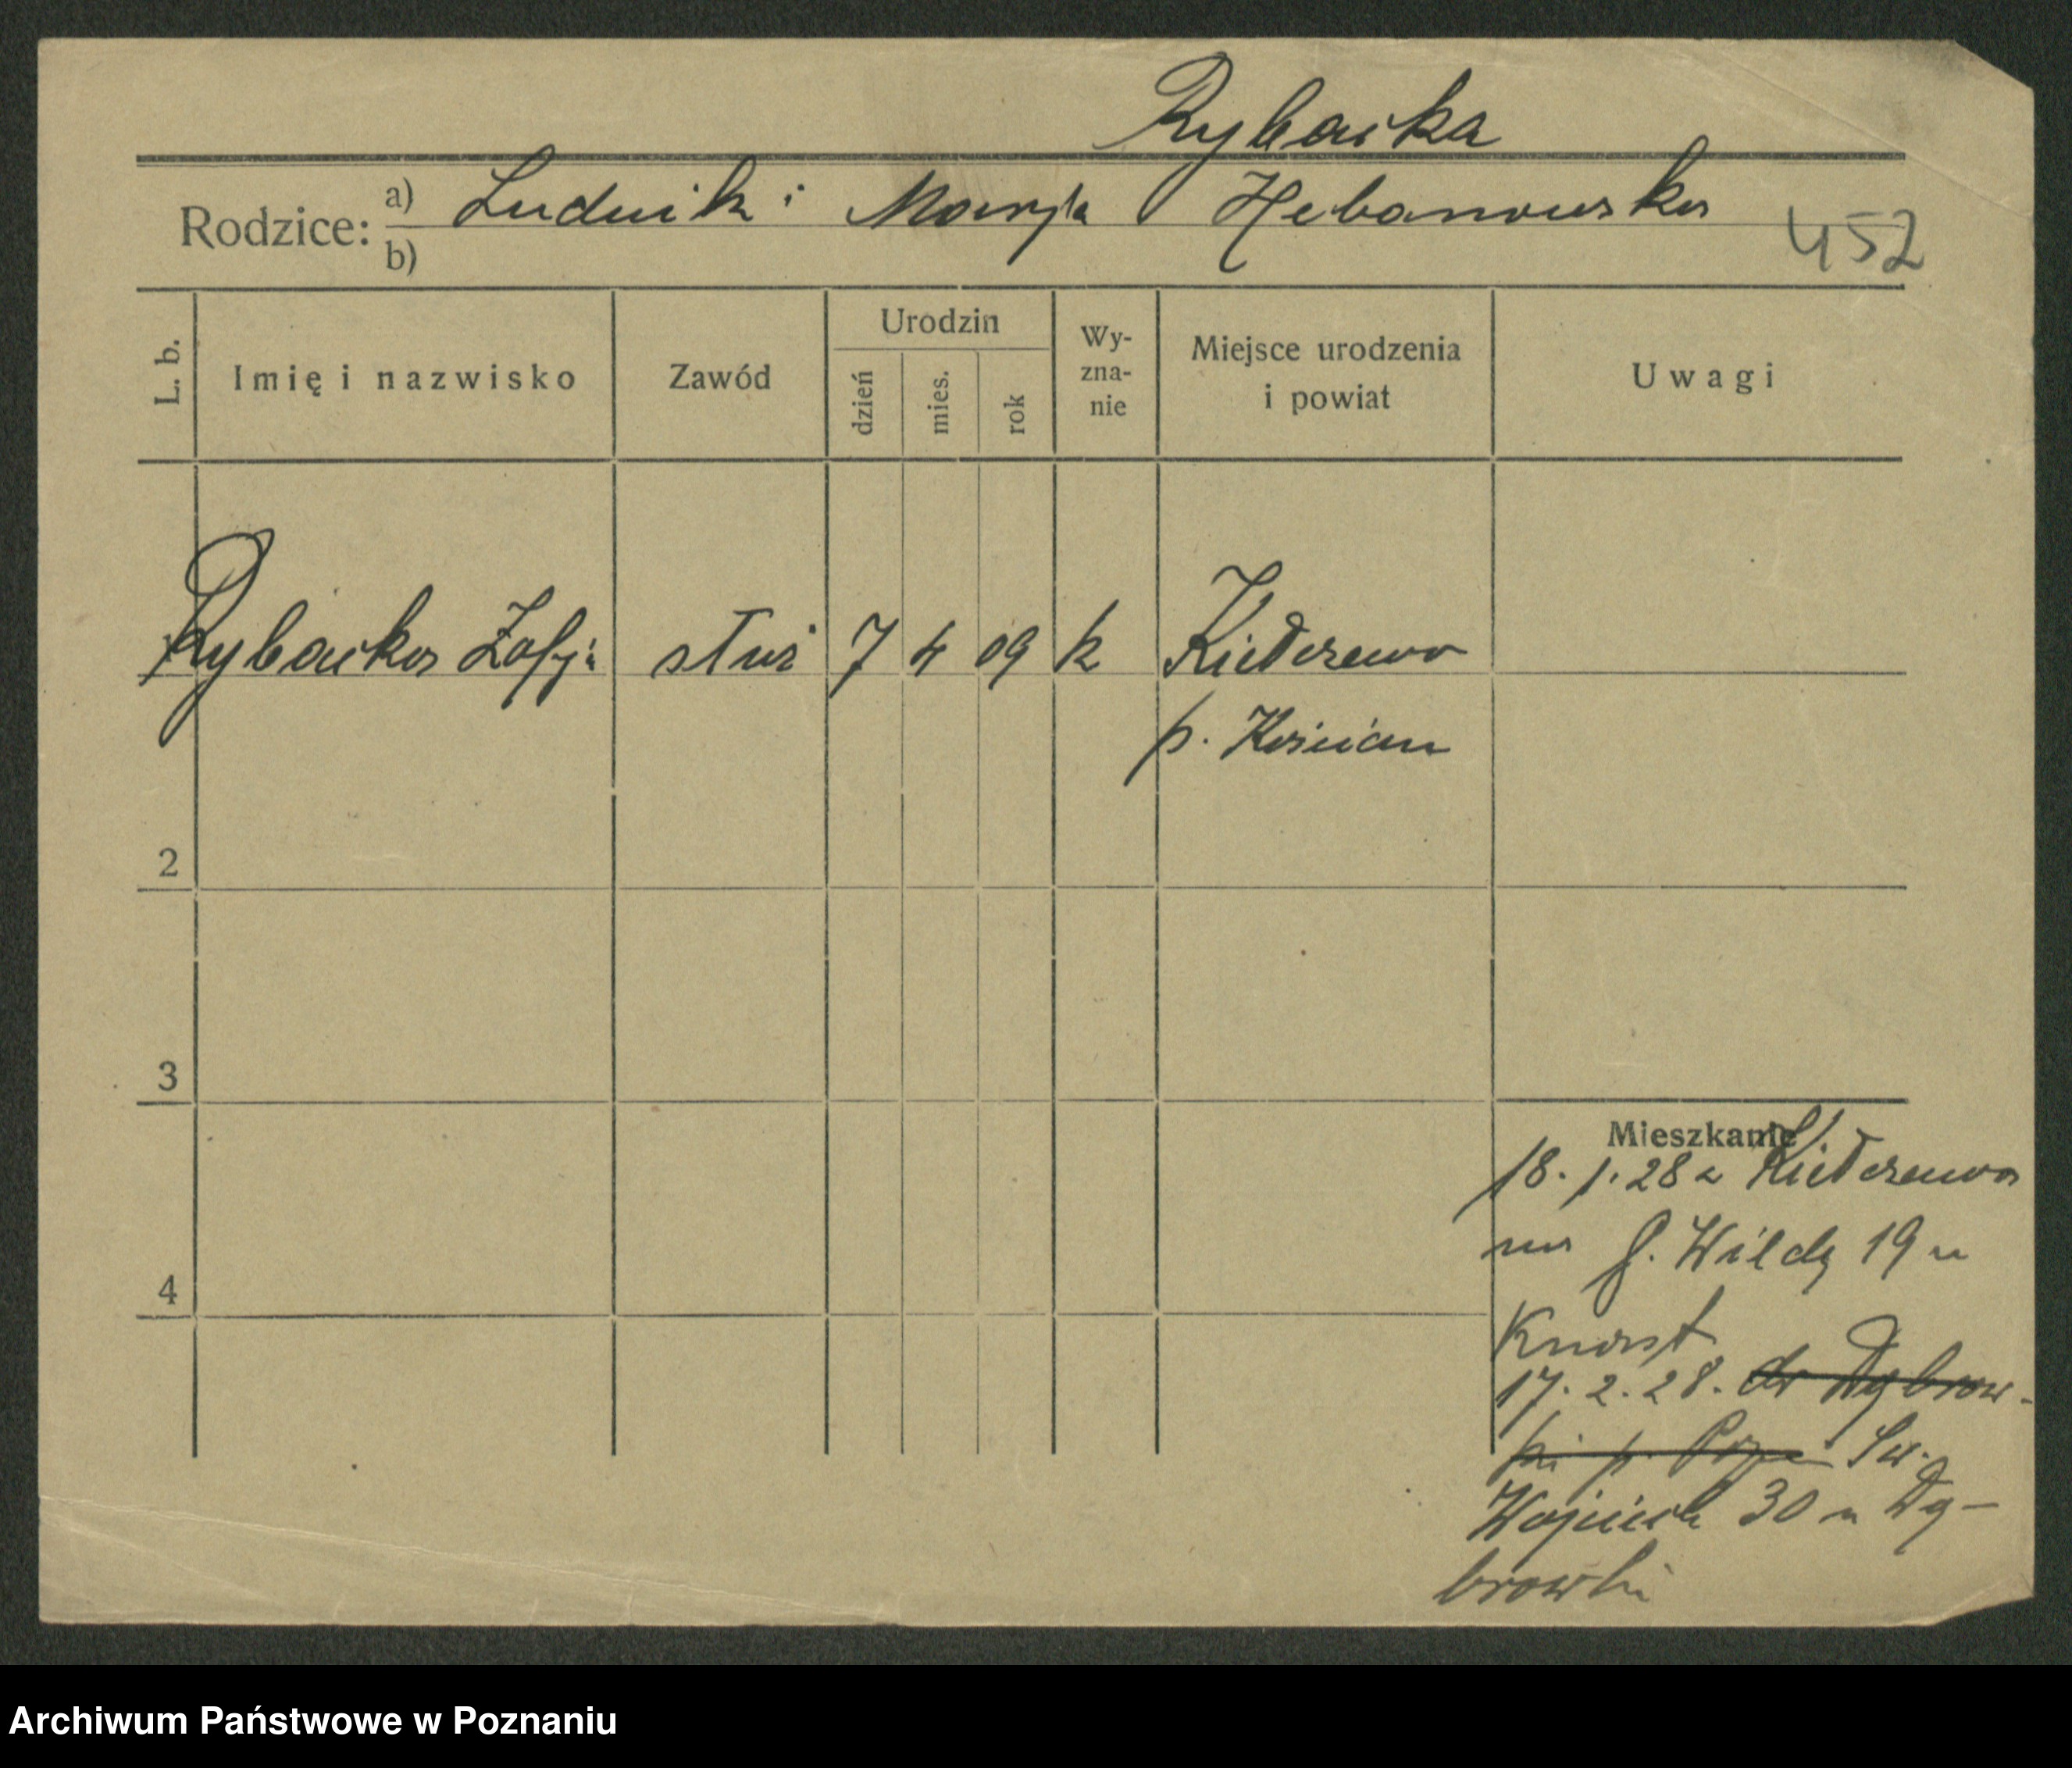 Rybacka
Rodzice: a) Ludwik i Marja Hebanowska
b)
452
L. b. Imię i nazwisko Zawód Urodzin dzień mies. rok Wy-zna-nie Miejsce urodzenia i powiat Uwagi
Rybacka Zofja służ 7 4 09 k Kiełczewo
p. Kościan
2
3
Mieszkanie
18. 1. 28 z Kiełczewa
na G. Wilda 19 u
4
Knast
17. 2. 28. do Dąbrow-
ki p. Pozn Św.
Wojciech 30 u Dą-
browski
Archiwum Państwowe w Poznaniu